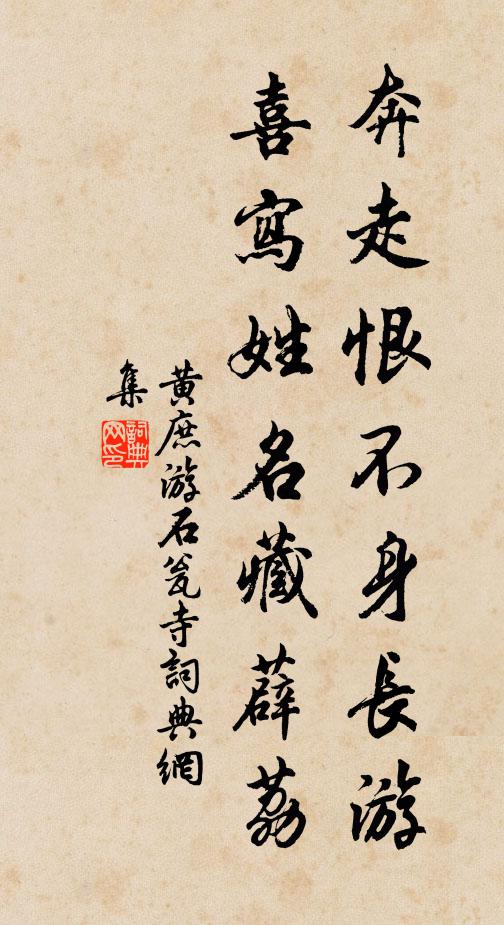 奔走恨不身長游
喜寫姓名藏薜荔
黃庶游石瓮寺詞典網
集
詞典
网印